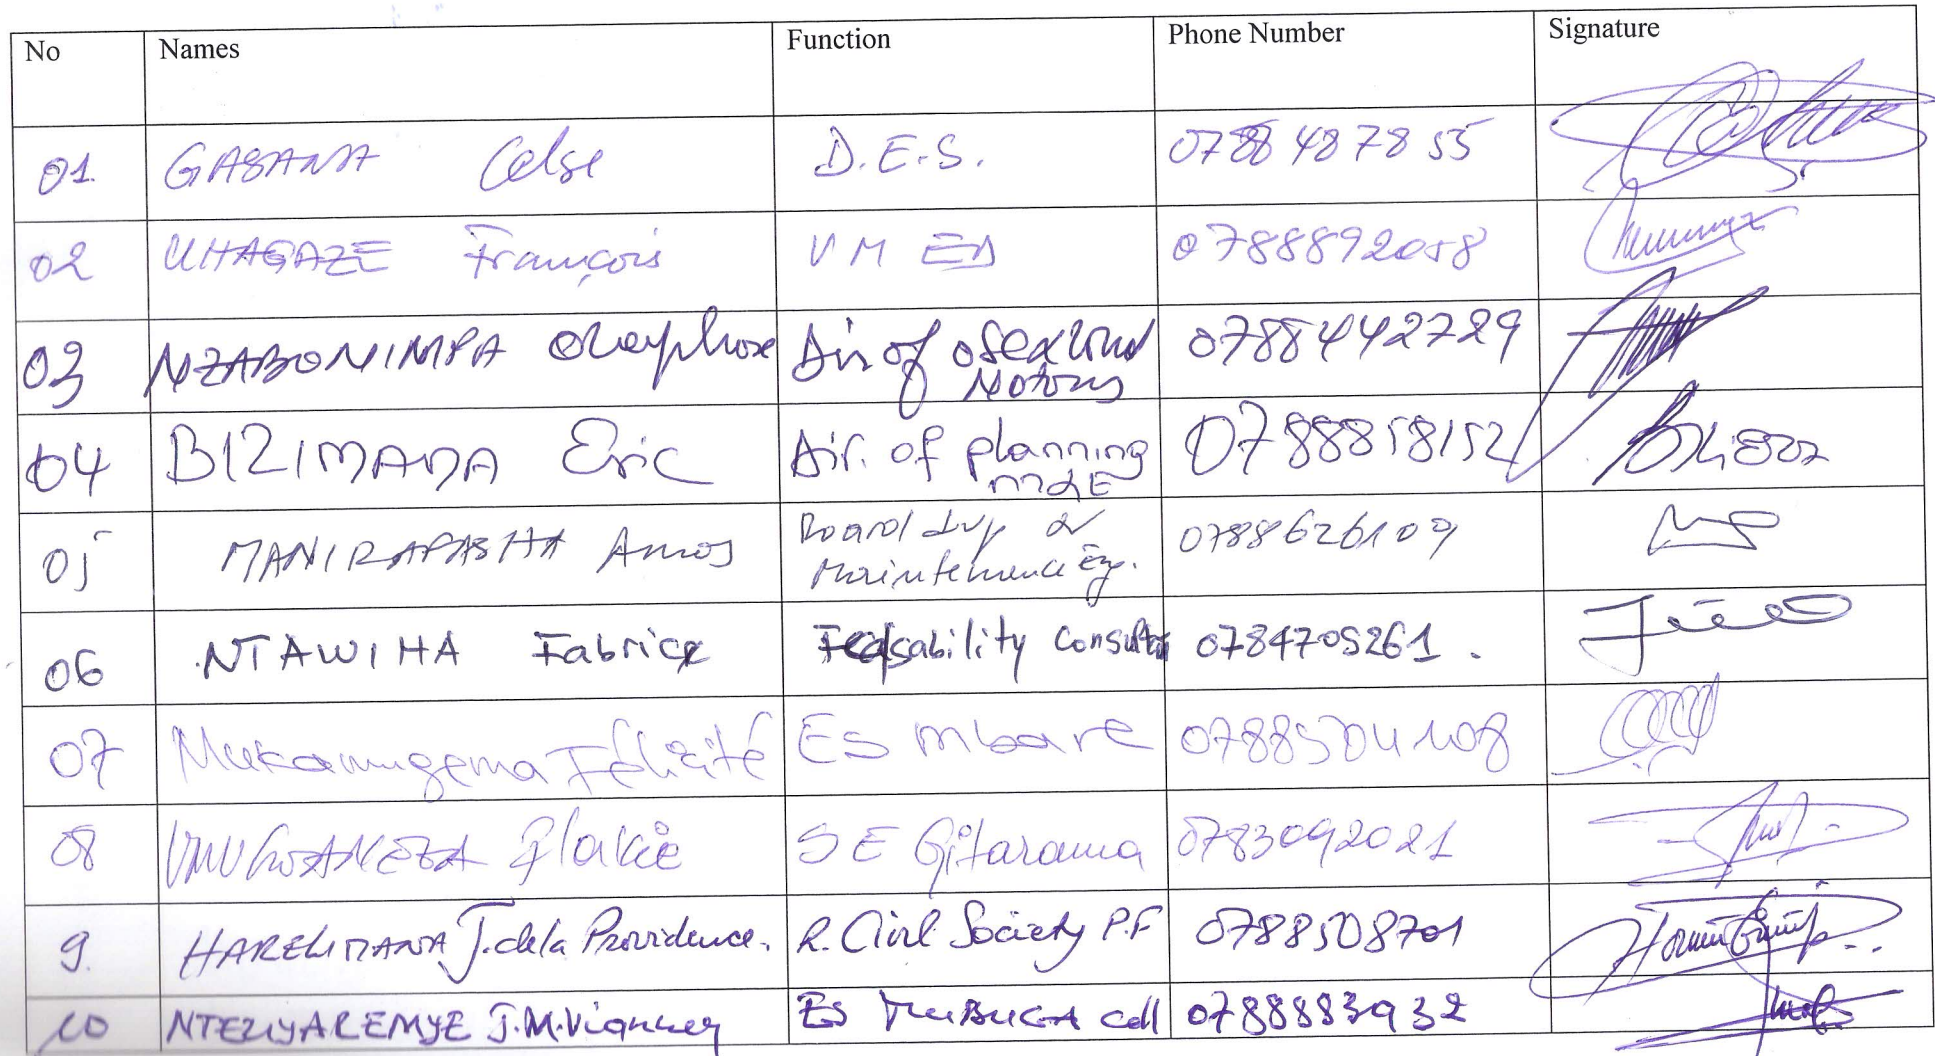 No Names Function Phone Number Signature
01. GASANA Celse D.E.S. 0788487855
02 UHAGAZE François V M ED 0788892058
03 NZABONIMPA Olayphose Dir of 0788442729
04 BIZIMANA Eric Dir. of planning 0788858152
M&E
05 MANIRAFASHA Amos Board Sup & 0788626109
Maintenance Eng.
06 NTAWIHA Fabrice Feasability Consultant 0784705261.
07 Mukamugema Félicité ES Mbare 0788504108
08 UMUHOZA SE Gitarama 0783092021
9. HARELIMANA J. de la Providence. R. Civil Society P.F 0788508701
10 NTEZIYAREMYE J.M.Vianney ES MUBUGA cell 0788883932